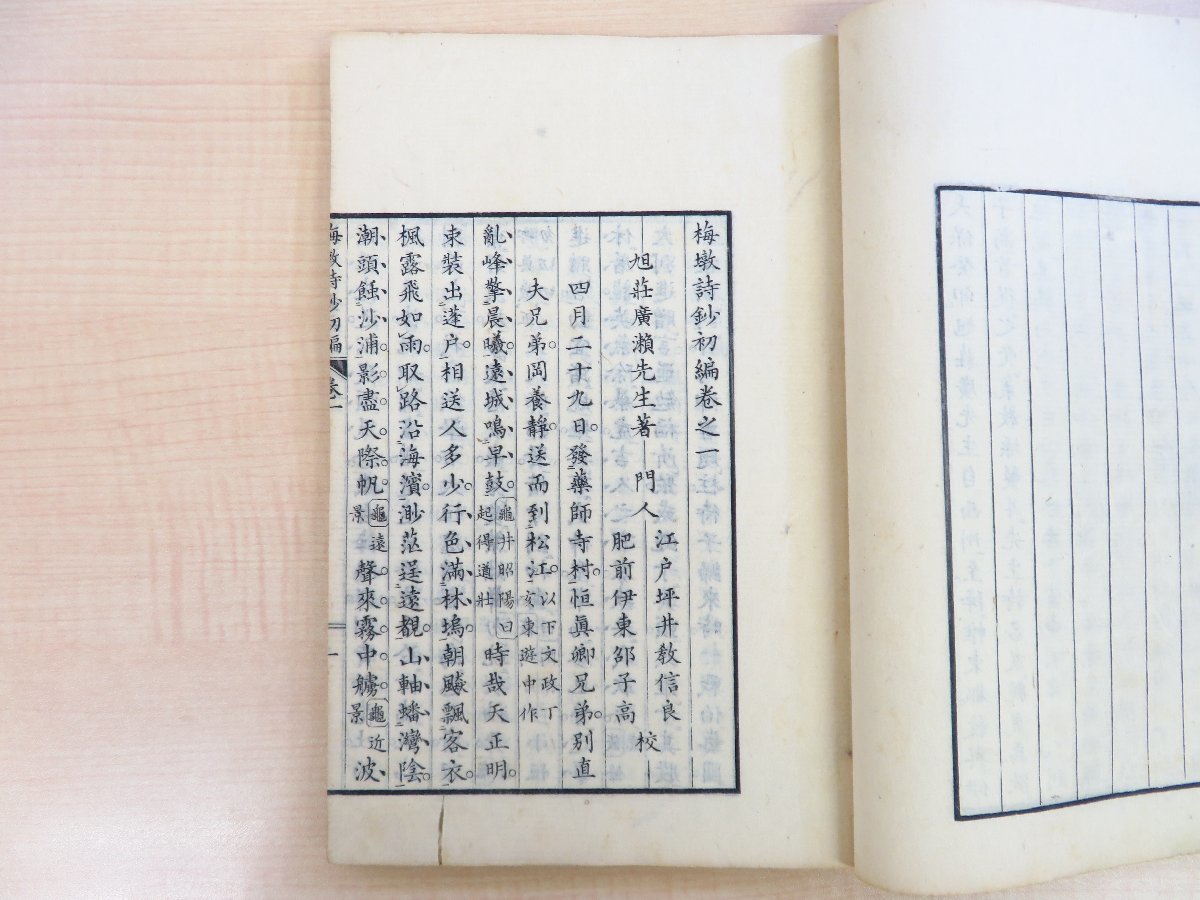 梅墩詩鈔初編卷之一
旭莊廣瀨先生著 門人 江戸坪井教信良 肥前伊東邵子高 校
四月二十九日發藥師寺村恒眞卿兄弟別直
夫兄弟岡養靜送而到松江以下文政丁亥東遊中作
亂峰擎晨曦遠城鳴早鼓龜井昭陽曰起得遒壯時哉天正明
束裝出蓬戸相送人多少行色滿林塢朝飈飄客衣
楓露飛如雨取路沿海濱渺茫逞遠覩山軸蟠灣陰
潮頭蝕沙浦影盡天際帆龜遠景聲來霧中艣龜近景波
梅墩詩鈔初編 卷一 一